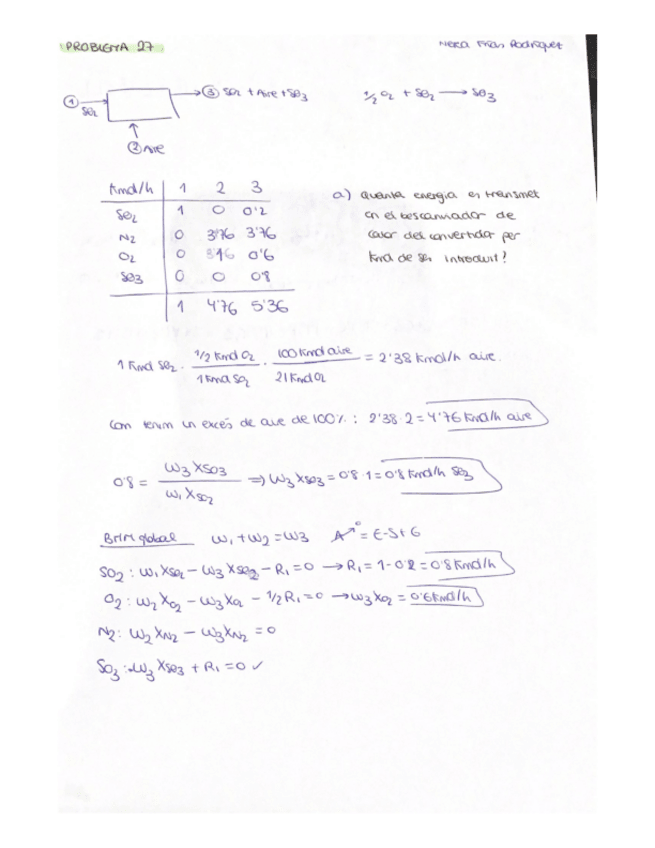 PROBLEMA 27
Rodríguez
① SO2
③ SO2 + Aire + SO3
② Aire
1/2 O2 + SO2 → SO3
Kmol/h 1 2 3
SO2 1 0 0'2
N2 0 3'76 3'76
O2 0 0'6
SO3 0 0 0'8
1 4'76 5'36
a) Quanta energia es transmet
en el bescanviador de
calor del convertidor per
Kmol de SO2 introduit?
1 Kmol SO2 · 1/2 Kmol O2 / 1 Kmol SO2 · 100 Kmol aire / 21 Kmol O2 = 2'38 Kmol/h aire.
Com tenim un excés de aire de 100% : 2'38 · 2 = 4'76 Kmol/h aire
0'8 = W3 XSO3 / W1 XSO2 ⇒ W3 XSO3 = 0'8 · 1 = 0'8 Kmol/h SO3
BM global W1 + W2 = W3 A = E - S + G
SO2 : W1 XSO2 - W3 XSO2 - R1 = 0 → R1 = 1 - 0'2 = 0'8 Kmol/h
O2 : W2 XO2 - W3 XO2 - 1/2 R1 = 0 → W3 XO2 = 0'6 Kmol/h
N2 : W2 XN2 - W3 XN2 = 0
SO3 : -W3 XSO3 + R1 = 0 ✓